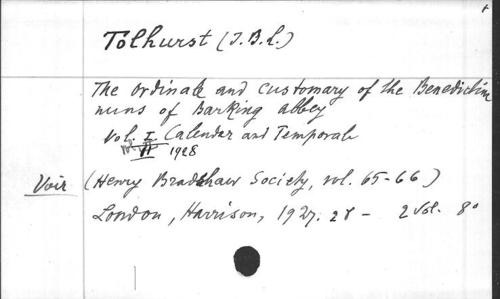 Tolhurst (J.B.L.)
The Ordinale and Customary of the Benedictine
nuns of Barking abbey
Vol. I. Calendar and Temporale
Vol. II 1928
Voir (Henry Bradshaw Society, vol. 65-66)
London, Harrison, 1927. 28 - 2 vol. 8°